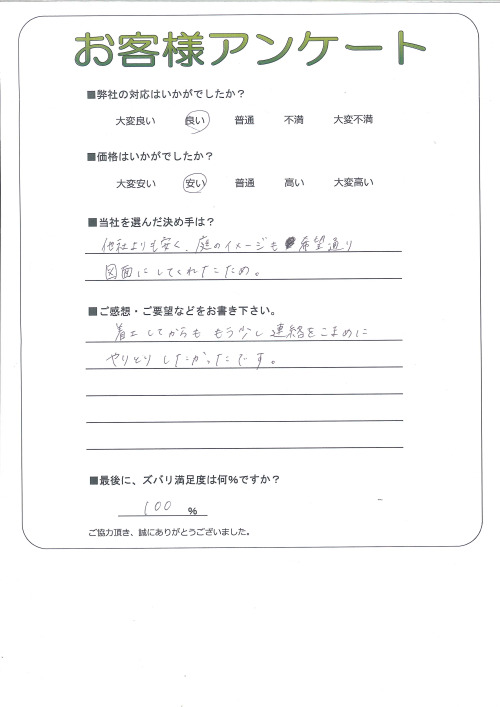 お客様アンケート
■弊社の対応はいかがでしたか？
大変良い 良い 普通 不満 大変不満
■価格はいかがでしたか？
大変安い 安い 普通 高い 大変高い
■当社を選んだ決め手は？
他社よりも安く、庭のイメージも希望通り
図面にしてくれたため。
■ご感想・ご要望などをお書き下さい。
着工してからも もう少し連絡をこまめに
やりとりしたかったです。
■最後に、ズバリ満足度は何％ですか？
100 %
ご協力頂き、誠にありがとうございました。